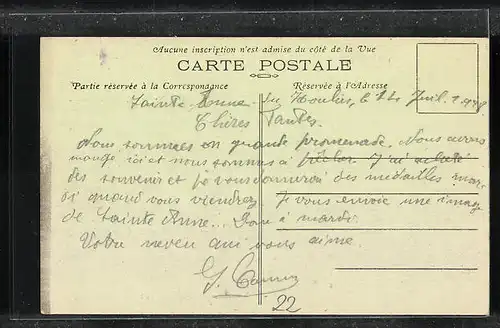 Aucune inscription n'est admise du côté de la Vue
CARTE POSTALE
Partie réservée à la Correspondance
Réservée à l'Adresse
Sainte-Anne du Moulin, le 14 Juil.
Chères Tantes
Nous sommes en grande promenade. Nous avons
mangé ici et nous sommes à pêcher J'ai acheté
des souvenir et je vous donnerai des médailles mar-
di quand vous viendrez. Je vous envoie une image
de Sainte Anne... Donc à mardi
Votre neveu qui vous aime
G.
22